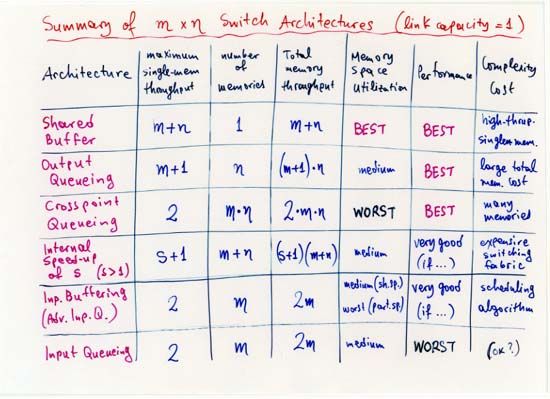 Summary of m x n Switch Architectures (link capacity = 1)
Architecture | maximum single-mem throughput | number of memories | Total memory throughput | Memory Space Utilization | Performance | Complexity Cost
Shared Buffer | m+n | 1 | m+n | BEST | BEST | high-thrup. single mem.
Output Queueing | m+1 | n | (m+1)·n | medium | BEST | large total mem. cost
Crosspoint Queueing | 2 | m·n | 2·m·n | WORST | BEST | many memories
Internal Speed-up of s (s>1) | s+1 | m+n | (s+1)(m+n) | medium | very good (if ...) | expensive switching fabric
Inp. Buffering (Adv. Inp. Q.) | 2 | m | 2m | medium (sh. sp.) worst (part. sp) | very good (if ...) | scheduling algorithm
Input Queueing | 2 | m | 2m | medium | WORST | (OK?)